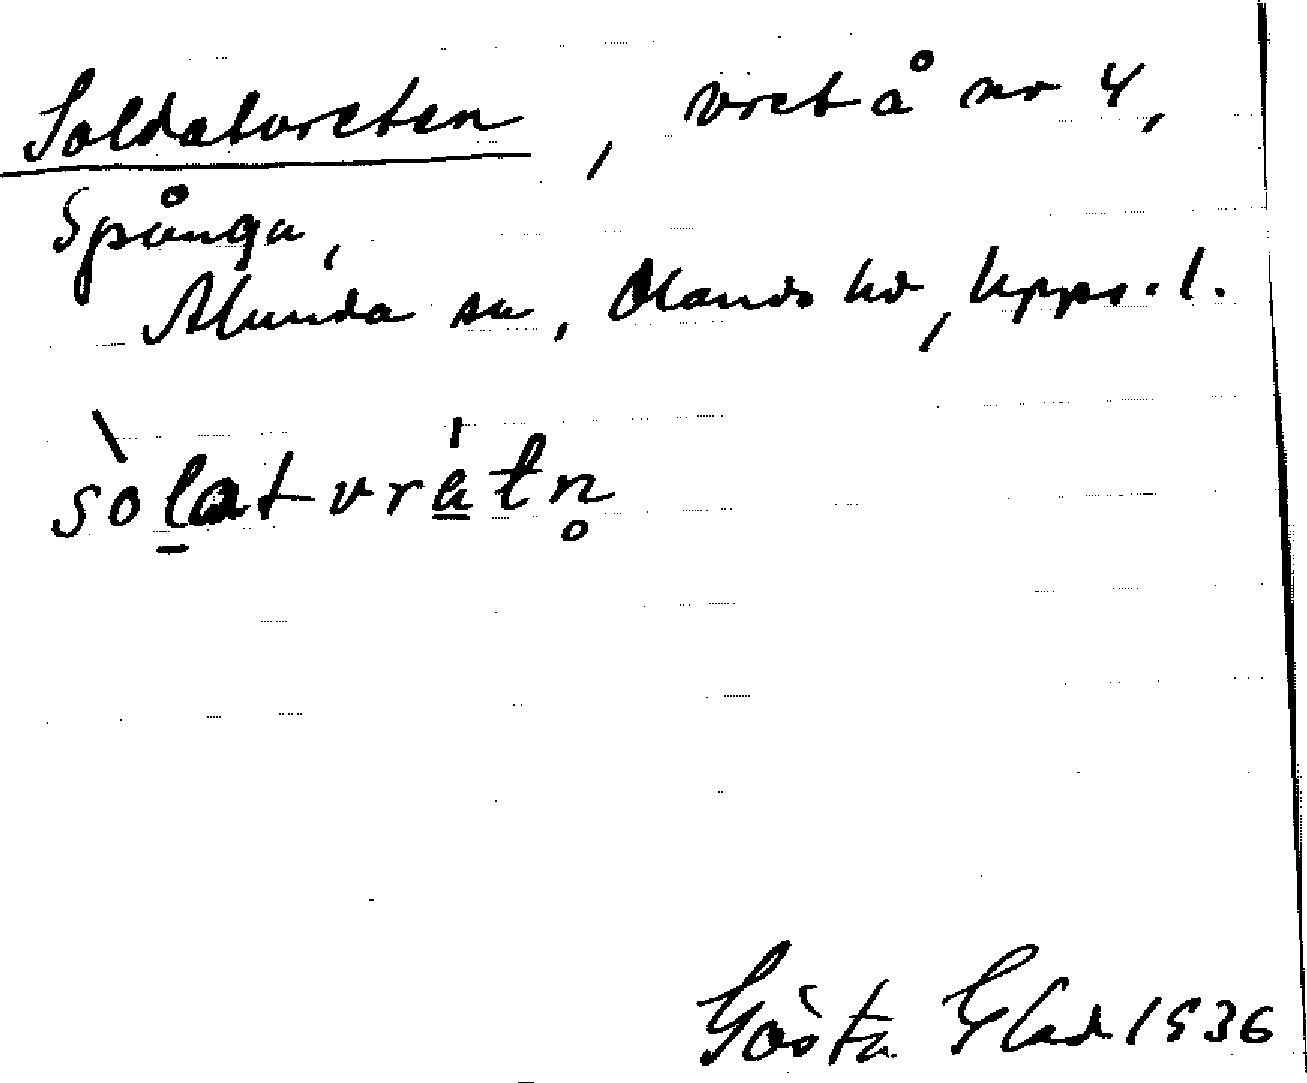 Soldatvreten, vret å nr 4,
Spånga,
Alunda sn, Olands hd, Upps. l.
sòlatvrátn̥
Gösta Glad 1936